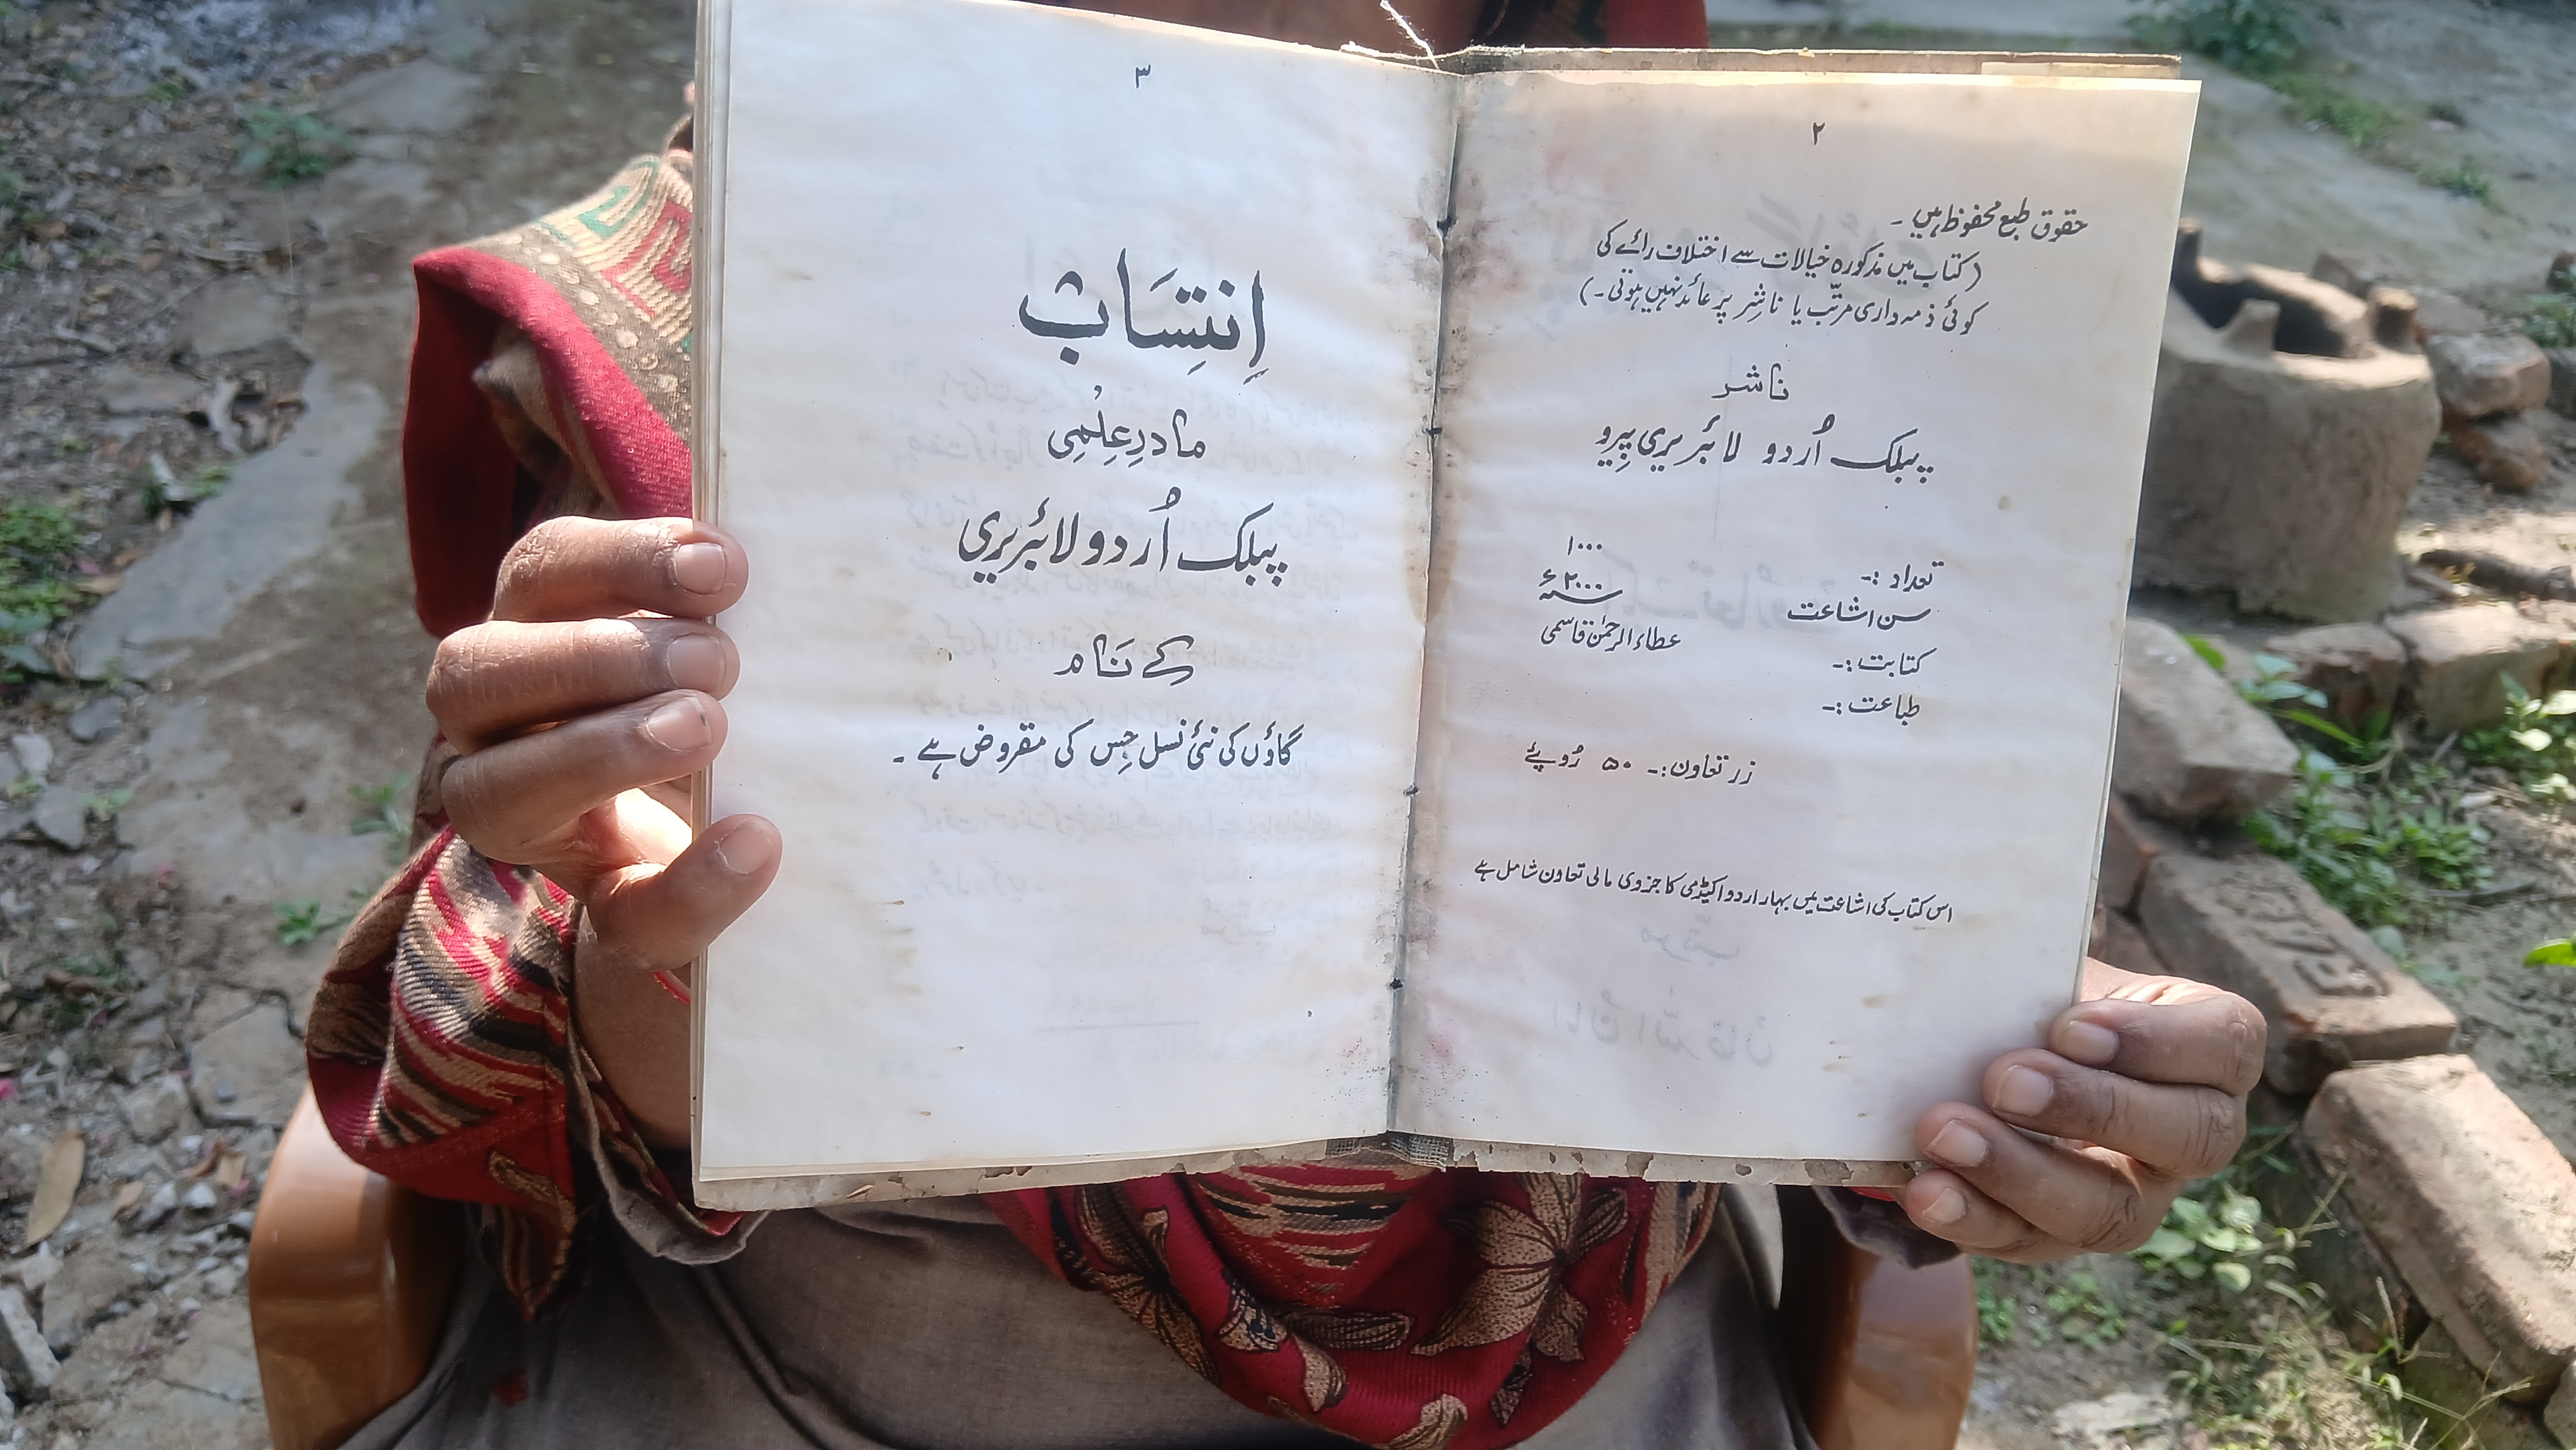 ۲
حقوق طبع محفوظ ہیں ۔
(کتاب میں مذکورہ خیالات سے اختلاف رائے کی
کوئی ذمہ داری مرتّب یا ناشِر پر عائد نہیں ہوتی ۔)
ناشر
پبلک اُردو لائبریری پِیرو
تعداد :۔ ۱۰۰۰
سن اشاعت ۲۰۰۰ء
کتابت :۔ عطاء الرحمٰن قاسمی
طباعت :۔
زر تعاون :۔ ۵۰ رُوپئے
اس کتاب کی اشاعت میں بہار اردو اکیڈمی کا جزوی مالی تعاون شامل ہے
۳
اِنتِسَاب
مادرِ عِلْمِی
پبلک اُردو لائبریری
کے نَام
گاؤں کی نئی نسل جِس کی مقروض ہے ۔